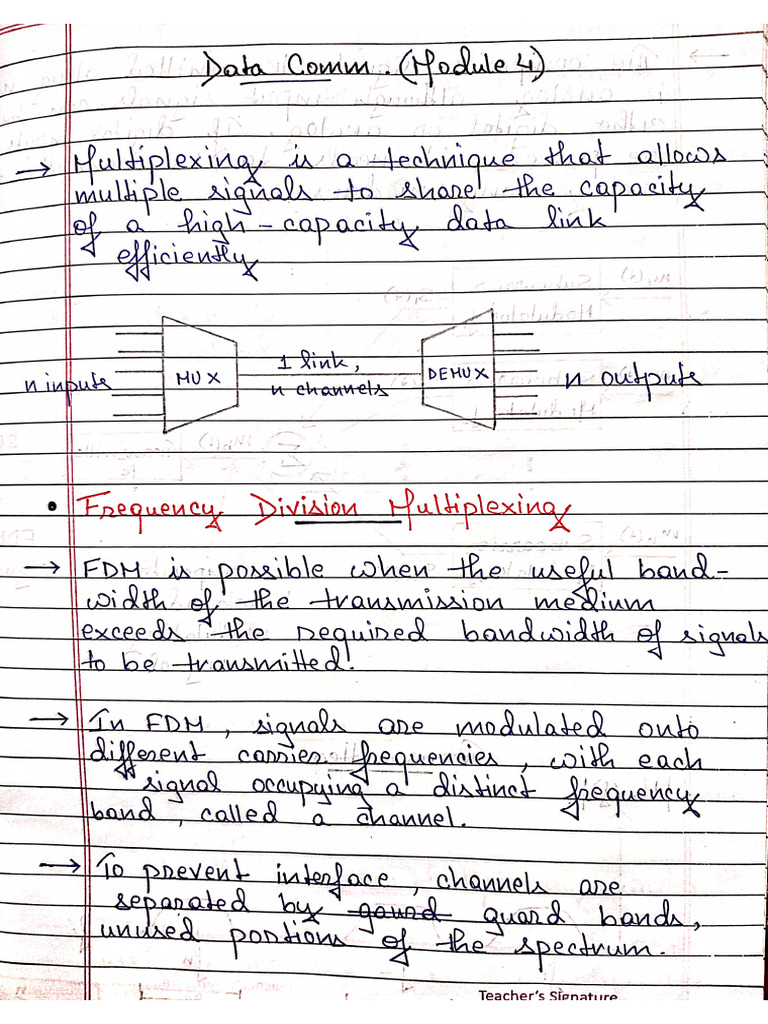 Data Comm. (Module 4)
→ Multiplexing is a technique that allows
multiple signals to share the capacity
of a high-capacity data link
efficiently
n inputs
MUX
1 link,
n channels
DEMUX
n outputs
• Frequency Division Multiplexing
→ FDM is possible when the useful band-
width of the transmission medium
exceeds the required bandwidth of signals
to be transmitted.
→ In FDM, signals are modulated onto
different carrier frequencies, with each
signal occupying a distinct frequency
band, called a channel.
→ To prevent interface, channels are
separated by gaurd guard bands,
unused portions of the spectrum.
Teacher's Signature